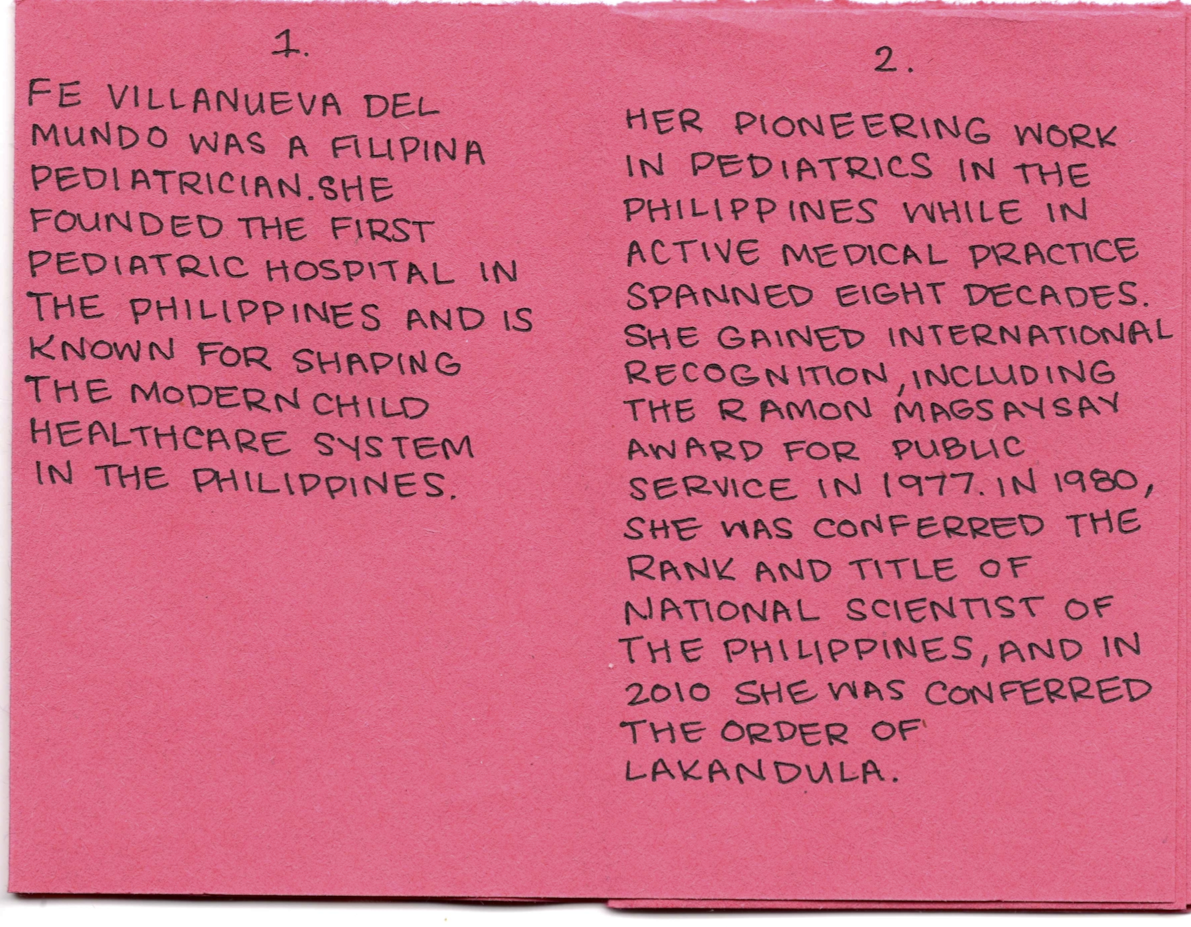 1.
FE VILLANUEVA DEL
MUNDO WAS A FILIPINA
PEDIATRICIAN. SHE
FOUNDED THE FIRST
PEDIATRIC HOSPITAL IN
THE PHILIPPINES AND IS
KNOWN FOR SHAPING
THE MODERN CHILD
HEALTHCARE SYSTEM
IN THE PHILIPPINES.
2.
HER PIONEERING WORK
IN PEDIATRICS IN THE
PHILIPPINES WHILE IN
ACTIVE MEDICAL PRACTICE
SPANNED EIGHT DECADES.
SHE GAINED INTERNATIONAL
RECOGNITION, INCLUDING
THE RAMON MAGSAYSAY
AWARD FOR PUBLIC
SERVICE IN 1977. IN 1980,
SHE WAS CONFERRED THE
RANK AND TITLE OF
NATIONAL SCIENTIST OF
THE PHILIPPINES, AND IN
2010 SHE WAS CONFERRED
THE ORDER OF
LAKANDULA.